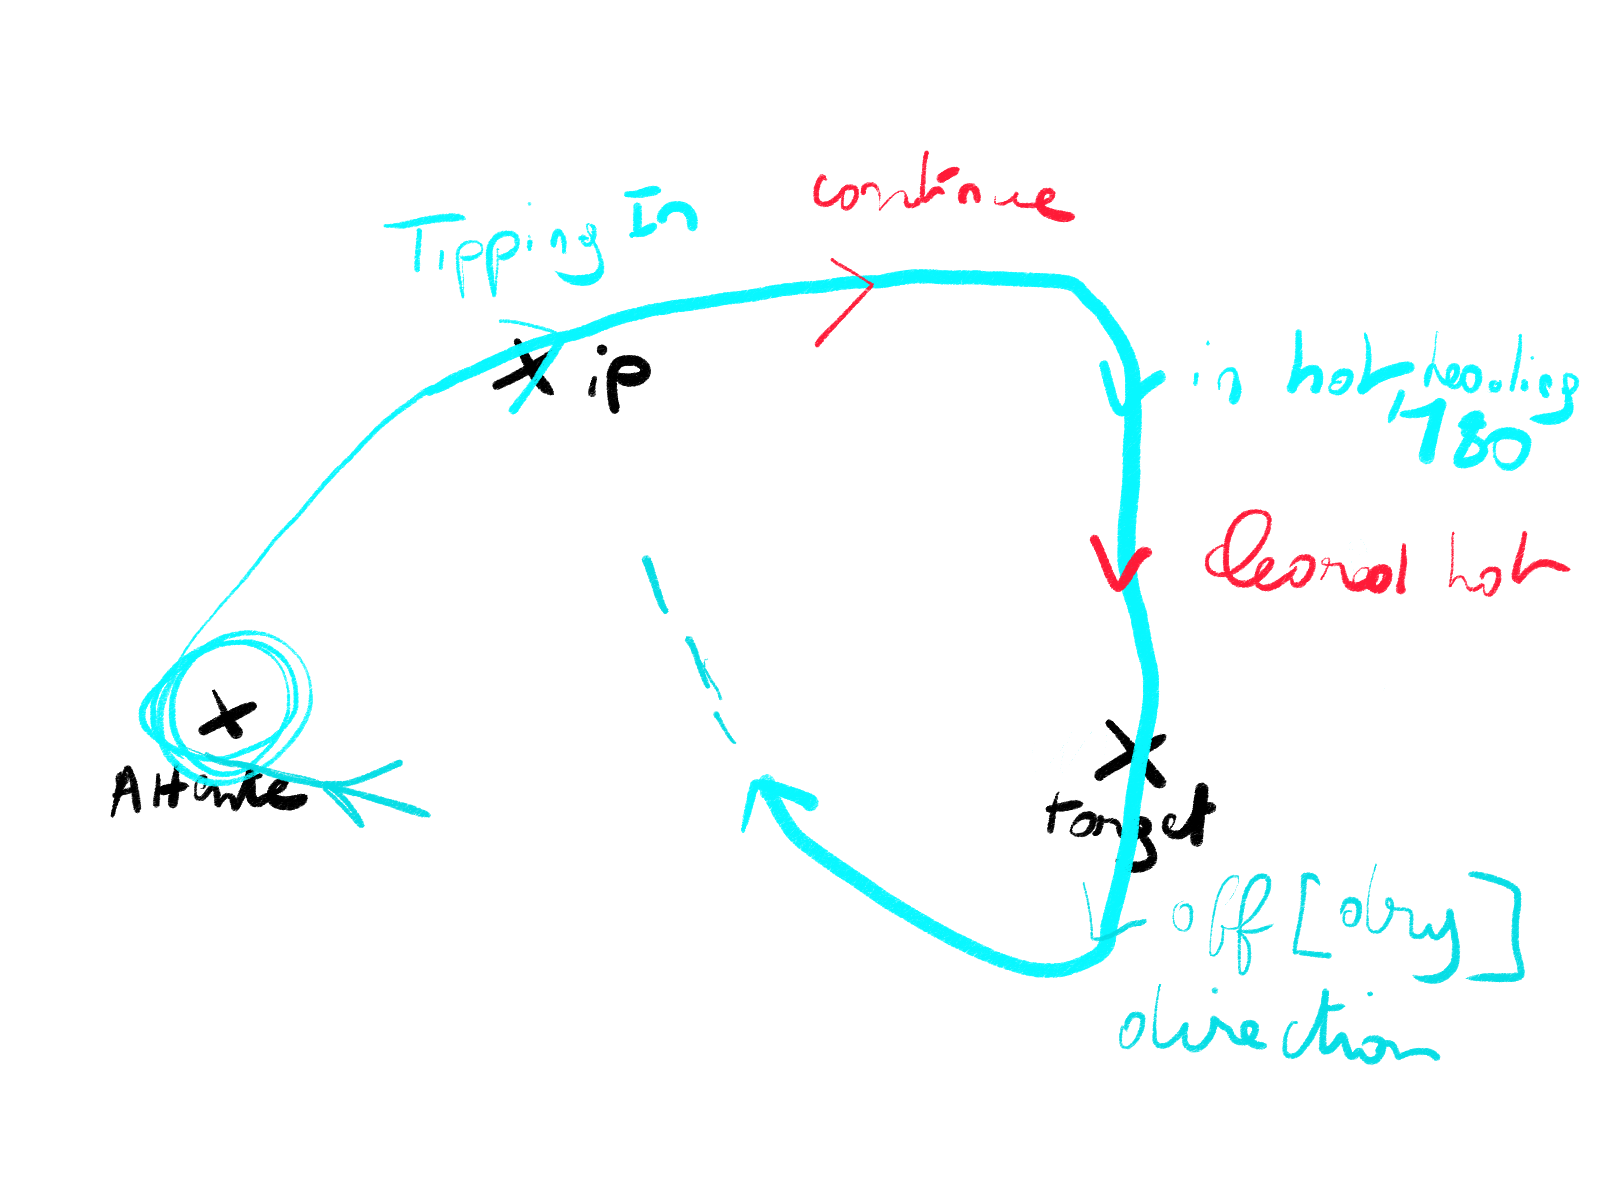 Tipping In
continue
ip
in hot, heading
180
Cleared hot
Attente
target
off [dry]
direction